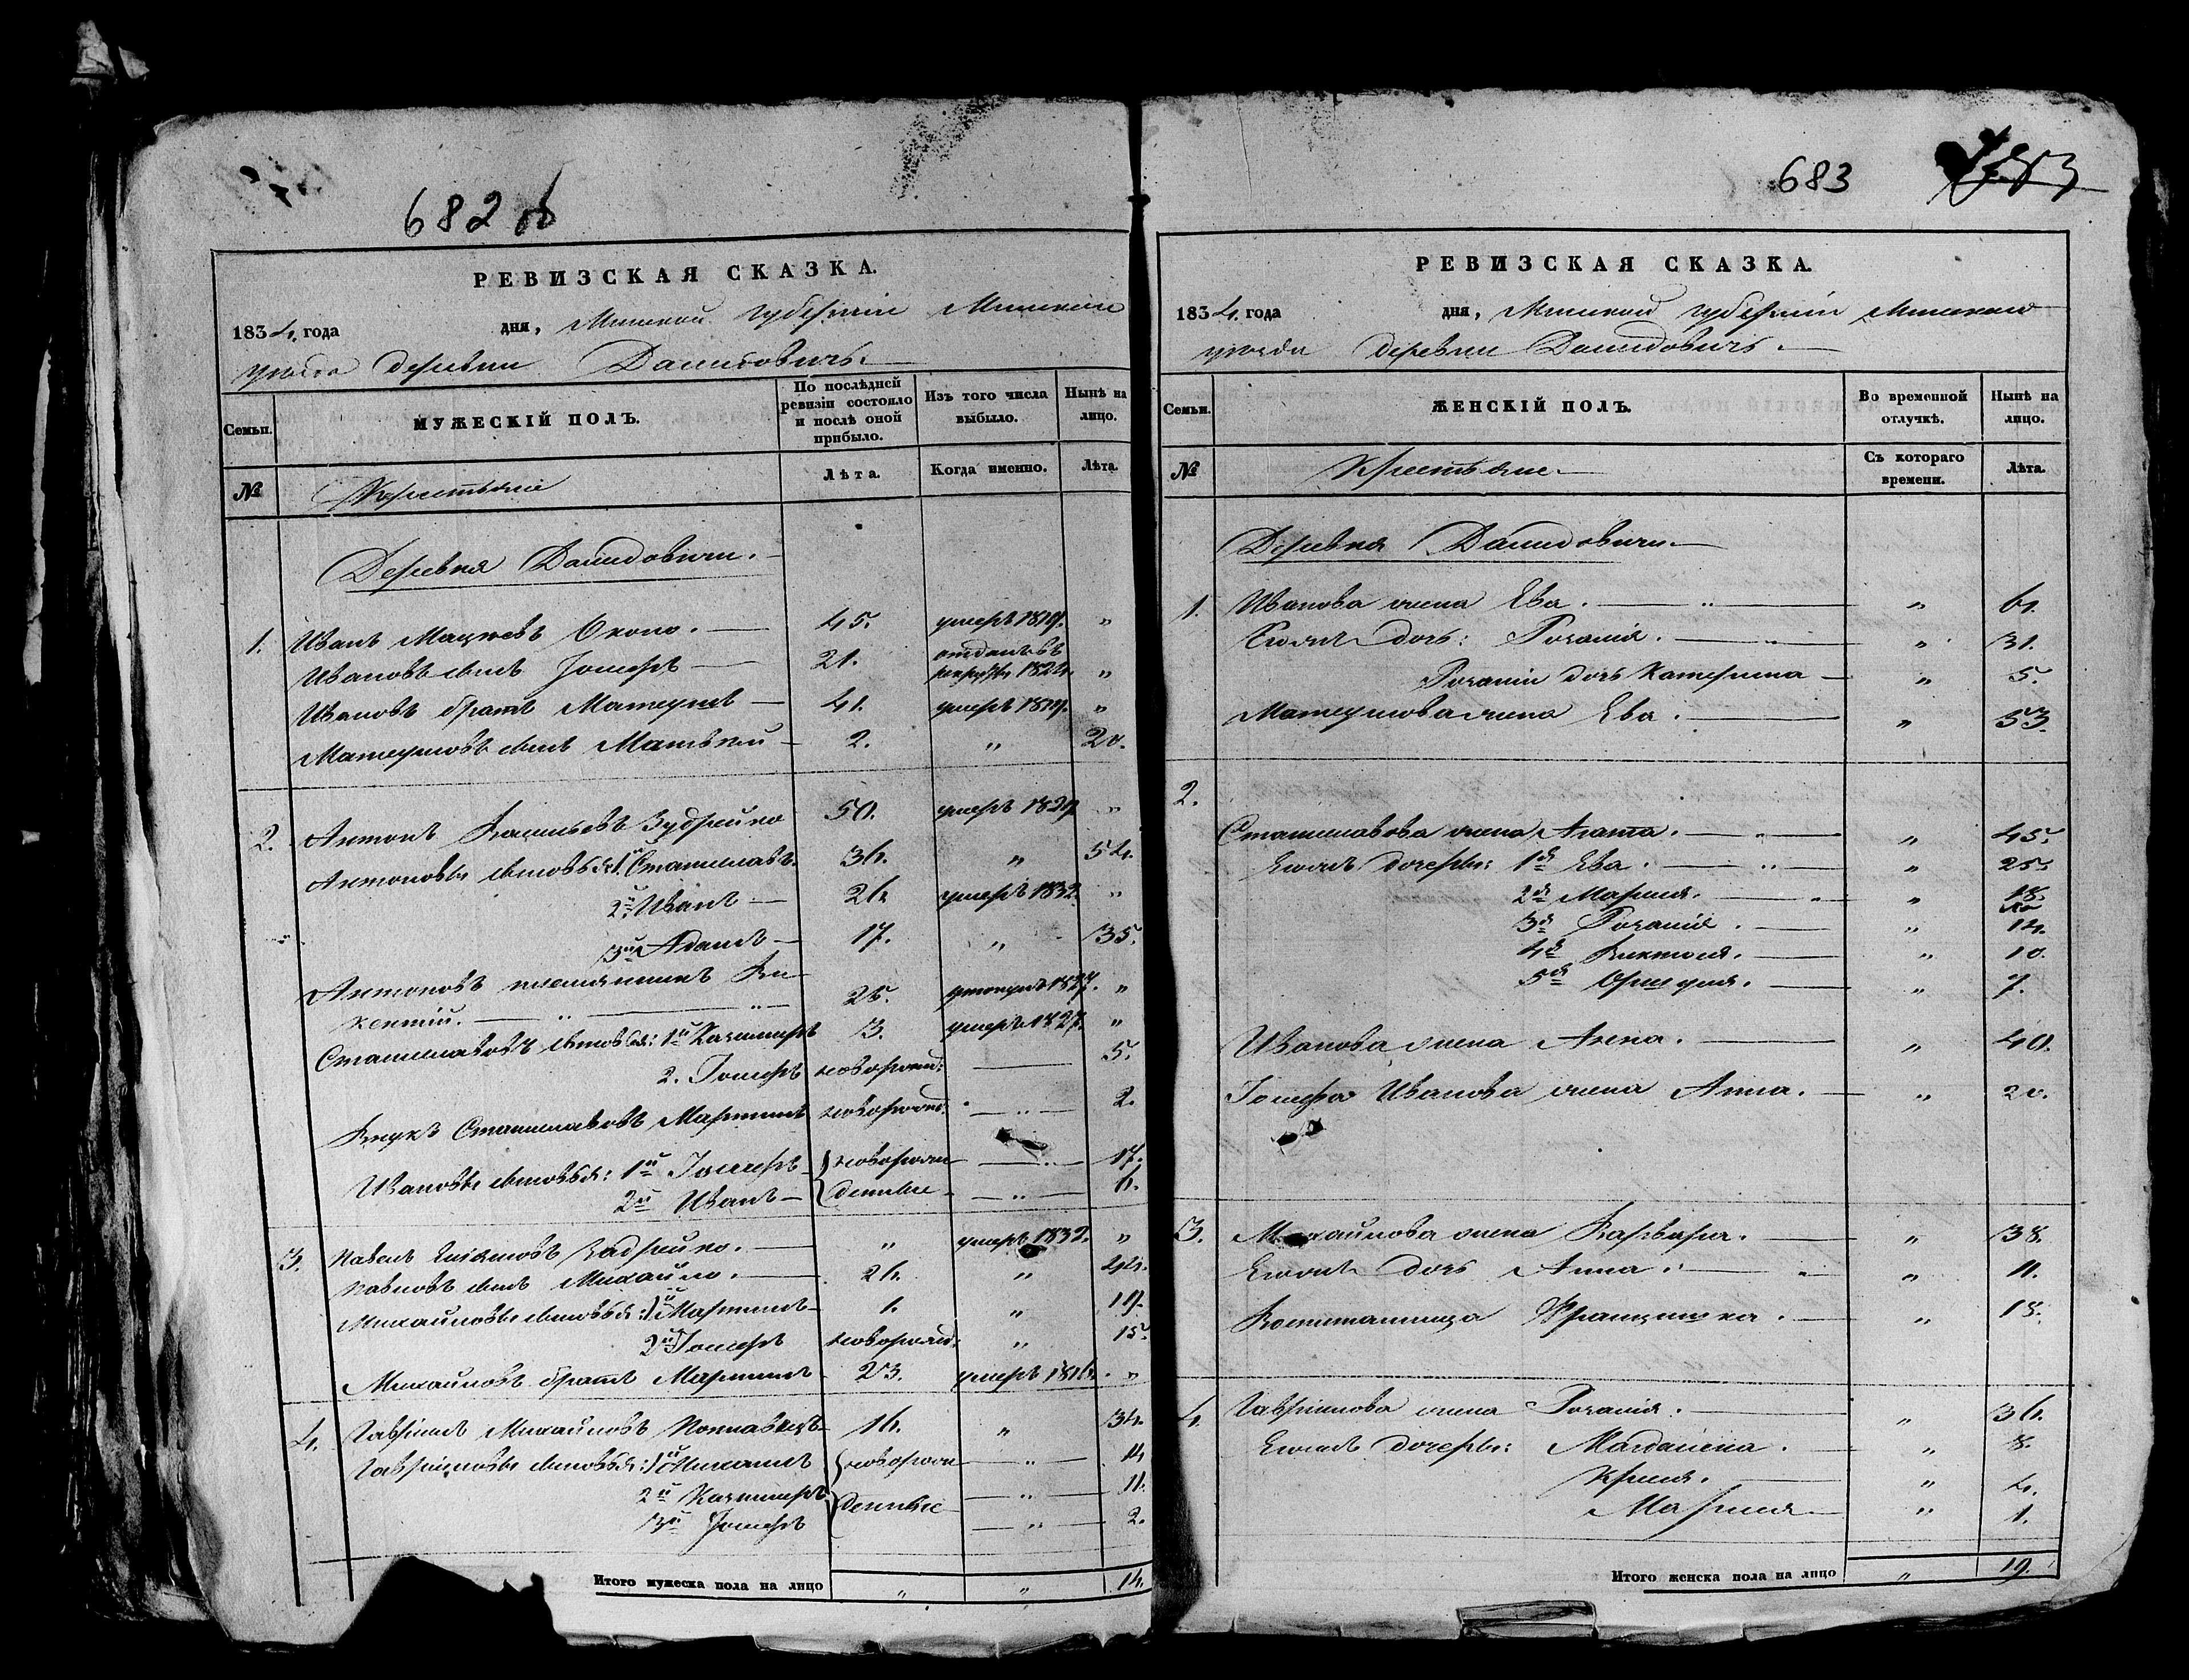 682 об
РЕВИЗСКАЯ СКАЗКА.
1834. года дня, Минской губерніи Минскаго
уезда деревни Давидовичъ.
Семьи.
МУЖЕСКІЙ ПОЛЪ.
По послѣдней ревизіи состояло и послѣ оной прибыло.
Изъ того числа выбыло.
Нынѣ на лицо.
№ Крестьяне Лѣта. Когда именно. Лѣта.
Деревня Давидовичи.
1. Иванъ Мацѣевъ 45. умеръ 1819. "
Ивановъ сынъ Іосифъ 21. отданъ въ рекруты 1824. "
Ивановъ братъ Матеушъ 41. умеръ 1819. "
Матеушовъ сынъ Матвѣй 2. " 20.
2. Антонъ Васильевъ Зубрейко 50. умеръ 1829 "
Антоновы сыновья: 1й Станиславъ. 36. " 54.
2й Иванъ 26. умеръ 1832. "
3й Адамъ 17. " 35.
Антоновъ племянникъ Ви-
кентій. 25. утонулъ 1827. "
Станиславовы сыновья: 1й Казимиръ 3. умеръ 1827. "
2. Іосифъ новорожд: 5.
Внукъ Станиславовъ Мартинъ новорожд. " 2.
Ивановы сыновья: 1й Іосифъ новорожден " 17.
2й Иванъ денные " 6.
3. Павелъ Задрейко. " умеръ 1832. "
Павловъ сынъ Михайло. 26. " 44.
Михайловы сыновья: 1й Мартинъ 1. " 19.
2й Іосифъ новорожд: " 15.
Михайловъ братъ Мартинъ 23. умеръ 1816. "
4. Гавріилъ Михайловъ 16. " 34.
Гавріиловы сыновья: 1й Михаилъ новорож " 14
2й Казимиръ " 11.
3й Іосифъ денные " 2.
Итого мужеска пола на лицо " " 14.
683
РЕВИЗСКАЯ СКАЗКА.
1834. года дня, Минской губерніи Минскаго
уезда деревни Давидовичъ.
Семьи.
ЖЕНСКІЙ ПОЛЪ.
Во временной отлучкѣ.
Нынѣ на лицо.
№ Крестьяне. Съ котораго времени. Лѣта.
Деревня Давидовичи.
1. Иванова жена Ева. " 61.
Егожъ дочь: Розалія. " 31.
Розаліи дочь Катерина " 5.
Матеушова жена Ева. " 53.
2.
Станиславова жена Агата. " 45.
Егожъ дочери: 1я Ева. " 25.
2я Марина. " 18.
3я Розалія. " 14.
4я Виктося. " 10.
5я Оршуля. " 7.
Иванова жена Анна. " 40.
Іосифа Иванова жена Анна. " 20.
3. Михайлова жена Варвара. " 38.
Егожъ дочь Анна. " 11.
Воспитанница Францишка. " 18.
4. Гавріилова жена Розалія. " 36.
Егожъ дочери: Магдалена. " 8.
" 4.
Марина " 1.
Итого женска пола на лицо " 19.